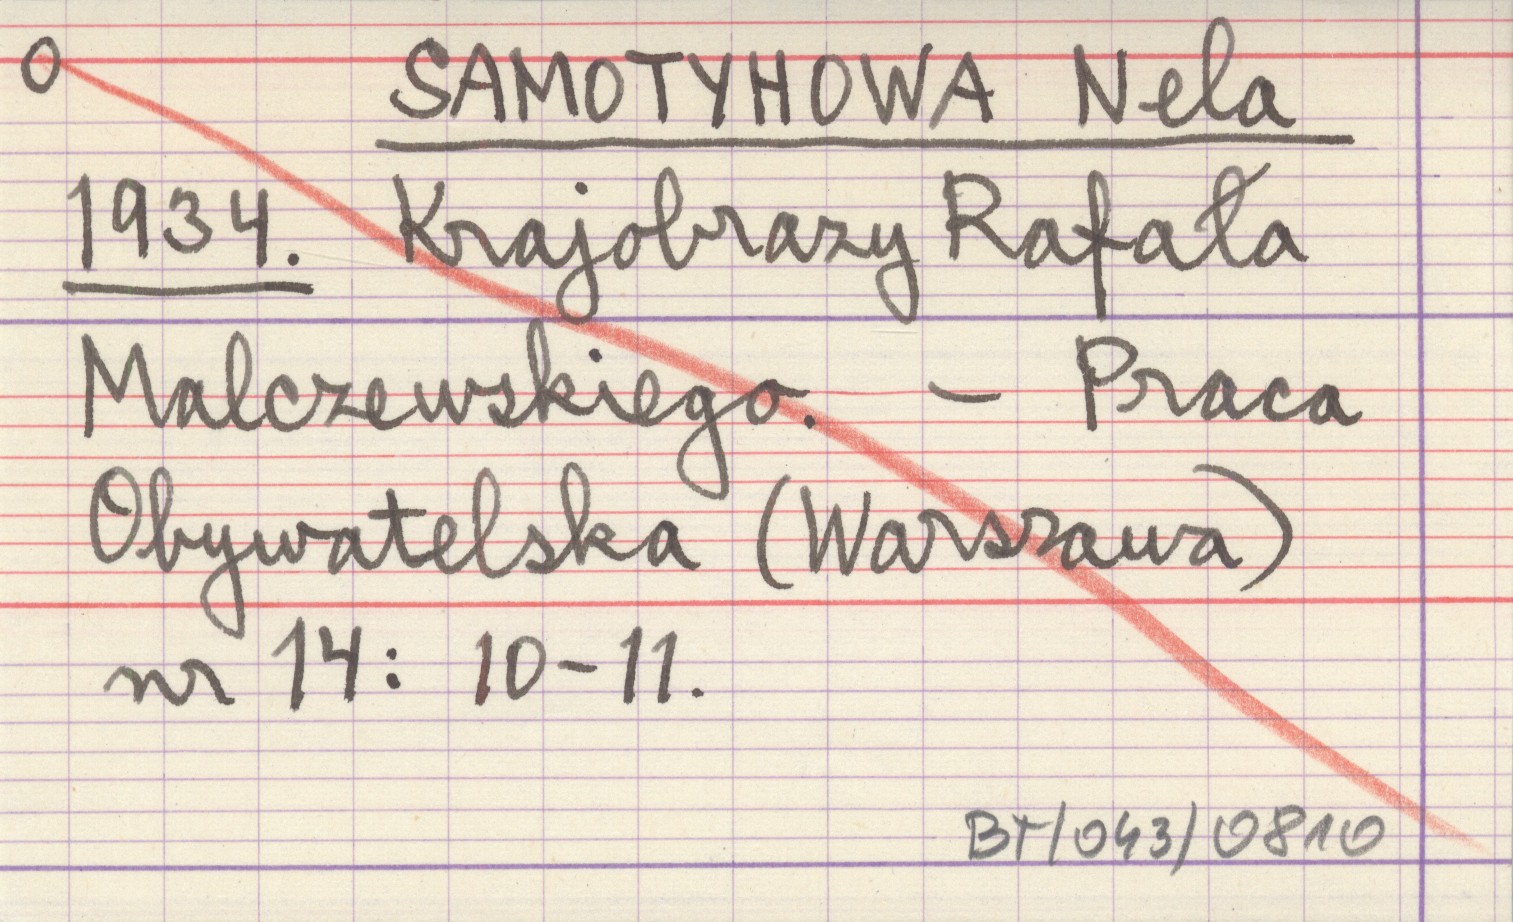 O SAMOTYHOWA Nela
1934. Krajobrazy Rafała
Malczewskiego. – Praca
Obywatelska (Warszawa)
nr 14: 10–11.
BT/043/0810